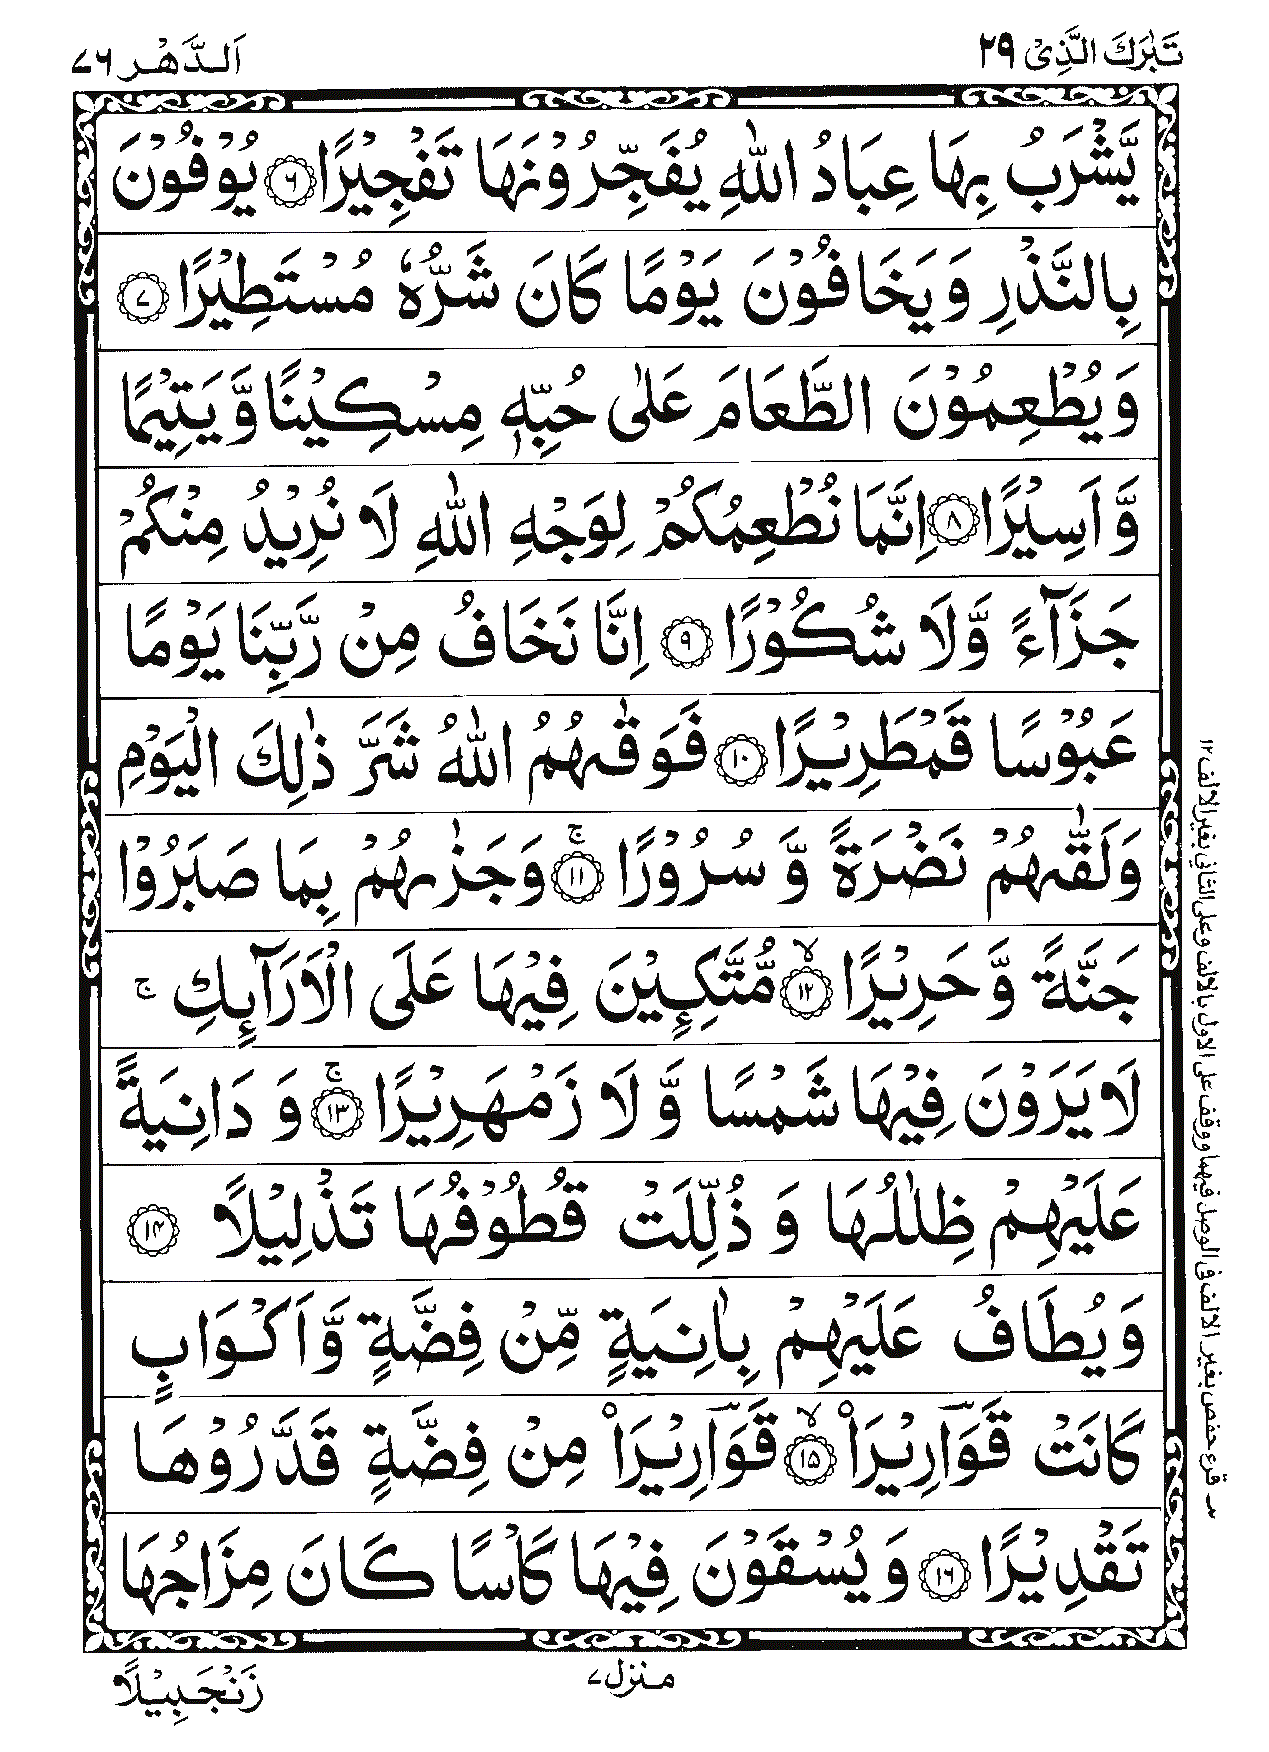 تَبٰرَكَ الَّذِیْ ۲۹
اَلدَّهْر ۷۶
يَّشْرَبُ بِهَا عِبَادُ اللّٰهِ يُفَجِّرُوْنَهَا تَفْجِيْرًا ۶ يُوْفُوْنَ
بِالنَّذْرِ وَيَخَافُوْنَ يَوْمًا كَانَ شَرُّهٗ مُسْتَطِيْرًا ۷
وَيُطْعِمُوْنَ الطَّعَامَ عَلٰى حُبِّهٖ مِسْكِيْنًا وَّيَتِيْمًا
وَّاَسِيْرًا ۸ اِنَّمَا نُطْعِمُكُمْ لِوَجْهِ اللّٰهِ لَا نُرِيْدُ مِنْكُمْ
جَزَآءً وَّلَا شُكُوْرًا ۹ اِنَّا نَخَافُ مِنْ رَّبِّنَا يَوْمًا
عَبُوْسًا قَمْطَرِيْرًا ۱۰ فَوَقٰىهُمُ اللّٰهُ شَرَّ ذٰلِكَ الْيَوْمِ
وَلَقّٰىهُمْ نَضْرَةً وَّ سُرُوْرًا ۚ ۱۱ وَجَزٰىهُمْ بِمَا صَبَرُوْا
جَنَّةً وَّ حَرِيْرًا ۙ ۱۲ مُّتَّكِـِٕيْنَ فِيْهَا عَلَى الْاَرَآىِٕكِ ج
لَا يَرَوْنَ فِيْهَا شَمْسًا وَّ لَا زَمْهَرِيْرًا ۚ ۱۳ وَ دَانِيَةً
عَلَيْهِمْ ظِلٰلُهَا وَ ذُلِّلَتْ قُطُوْفُهَا تَذْلِيْلًا ۱۴
وَيُطَافُ عَلَيْهِمْ بِاٰنِيَةٍ مِّنْ فِضَّةٍ وَّاَكْوَابٍ
كَانَتْ قَوَآرِيْرَا۠ ۙ ۱۵ قَوَآرِيْرَا۠ مِنْ فِضَّةٍ قَدَّرُوْهَا
تَقْدِيْرًا ۱۶ وَ يُسْقَوْنَ فِيْهَا كَاْسًا كَانَ مِزَاجُهَا
زَنْجَبِيْلًا
منزل ۷
قرء حفص بغير الالف فى الوصل فيهما ووقف على الاول بالالف وعلى الثانى بغير الالف ۱۲